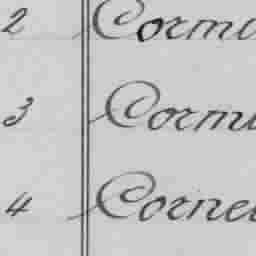 2 Cormi
3 Cormi
4 Corne